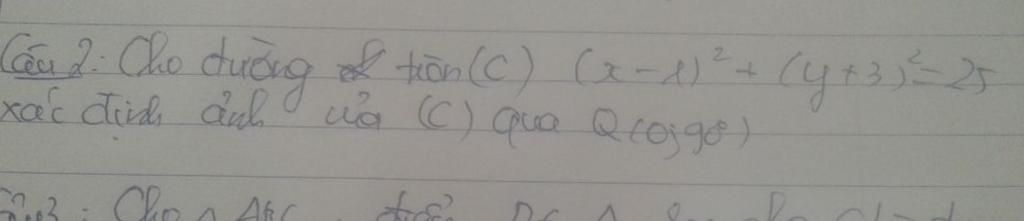 Câu 2: Cho đường tròn (C) (x - 1)² + (y + 3)² = 25
xác định ảnh của (C) qua Q(O; 90°)
: Cho △ ABC